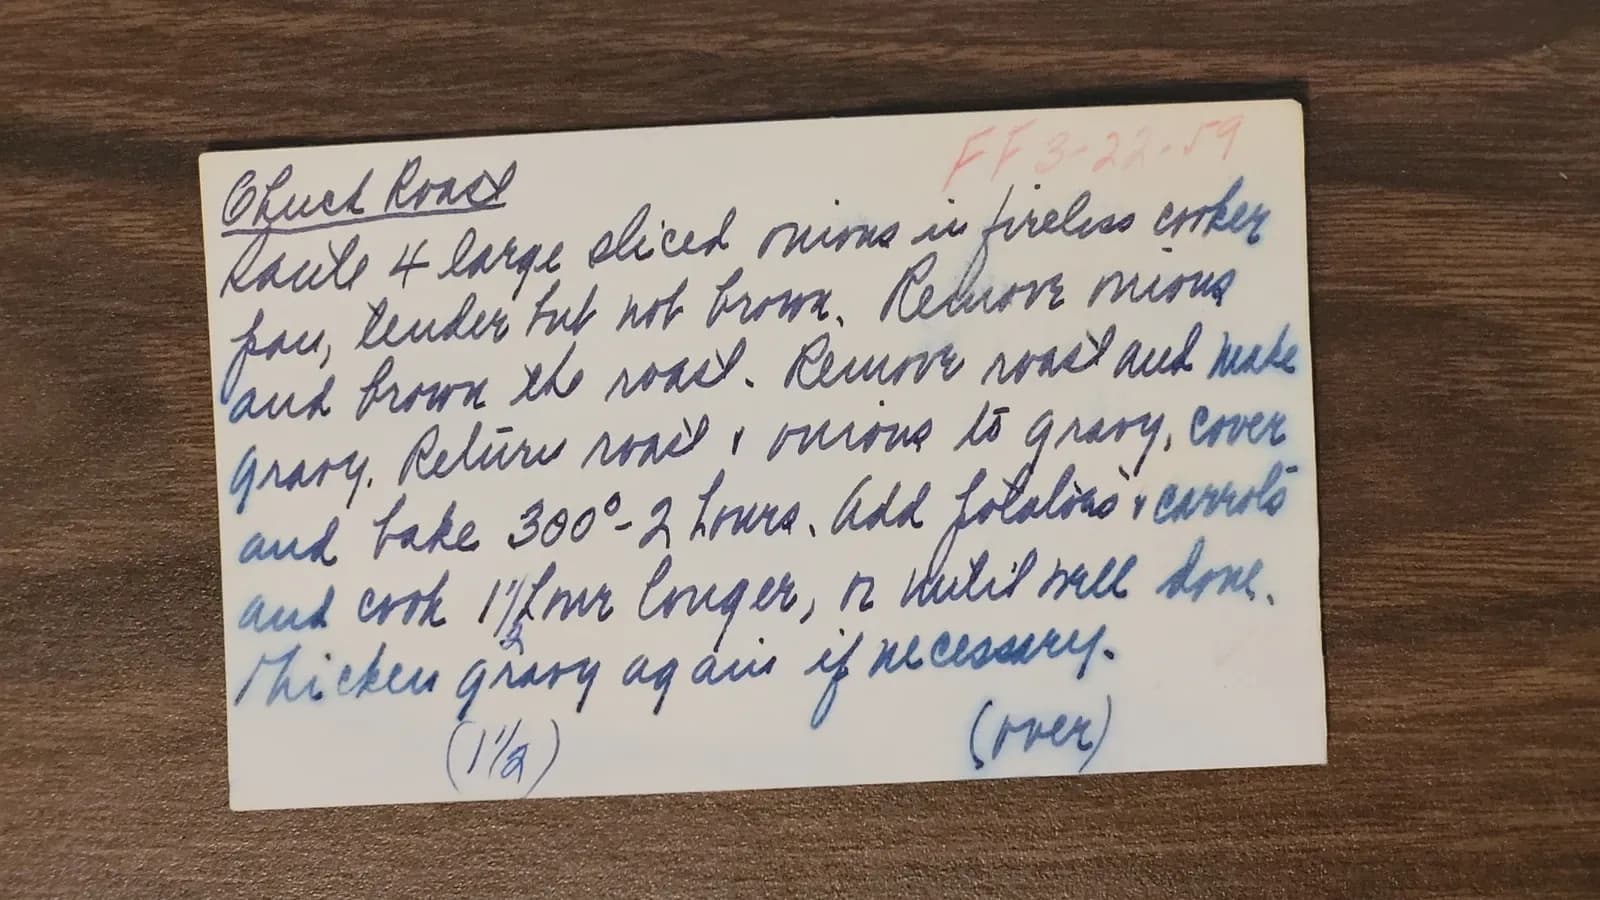 FF 3-22-59
Chuck Roast
Saute 4 large sliced onions in fireless cooker
pan, tender but not brown. Remove onions
and brown the roast. Remove roast and make
gravy. Return roast & onions to gravy, cover
and bake 300° - 2 hours. Add potatoes & carrots
and cook 1 1/2 hour longer, or until well done.
Thicken gravy again if necessary.
(1 1/2) (over)